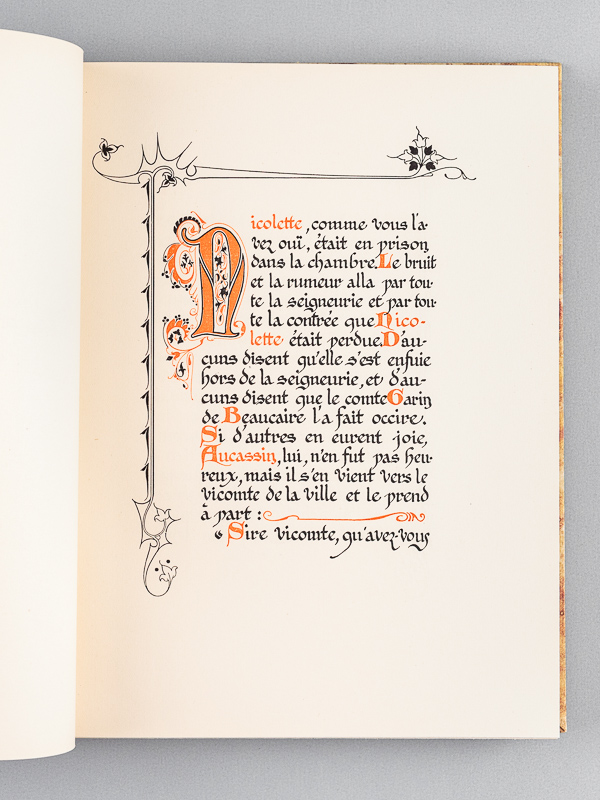 Nicolette, comme vous l'a-
vez ouï, était en prison
dans la chambre. Le bruit
et la rumeur alla par tou-
te la seigneurie et par tou-
te la contrée que Nico-
lette était perdue. D'au-
cuns disent qu'elle s'est enfuie
hors de la seigneurie, et d'au-
cuns disent que le comte Garin
de Beaucaire l'a fait occire.
Si d'autres en eurent joie,
Aucassin, lui, n'en fut pas heu-
reux, mais il s'en vient vers le
vicomte de la ville et le prend
à part :
« Sire vicomte, qu'avez-vous